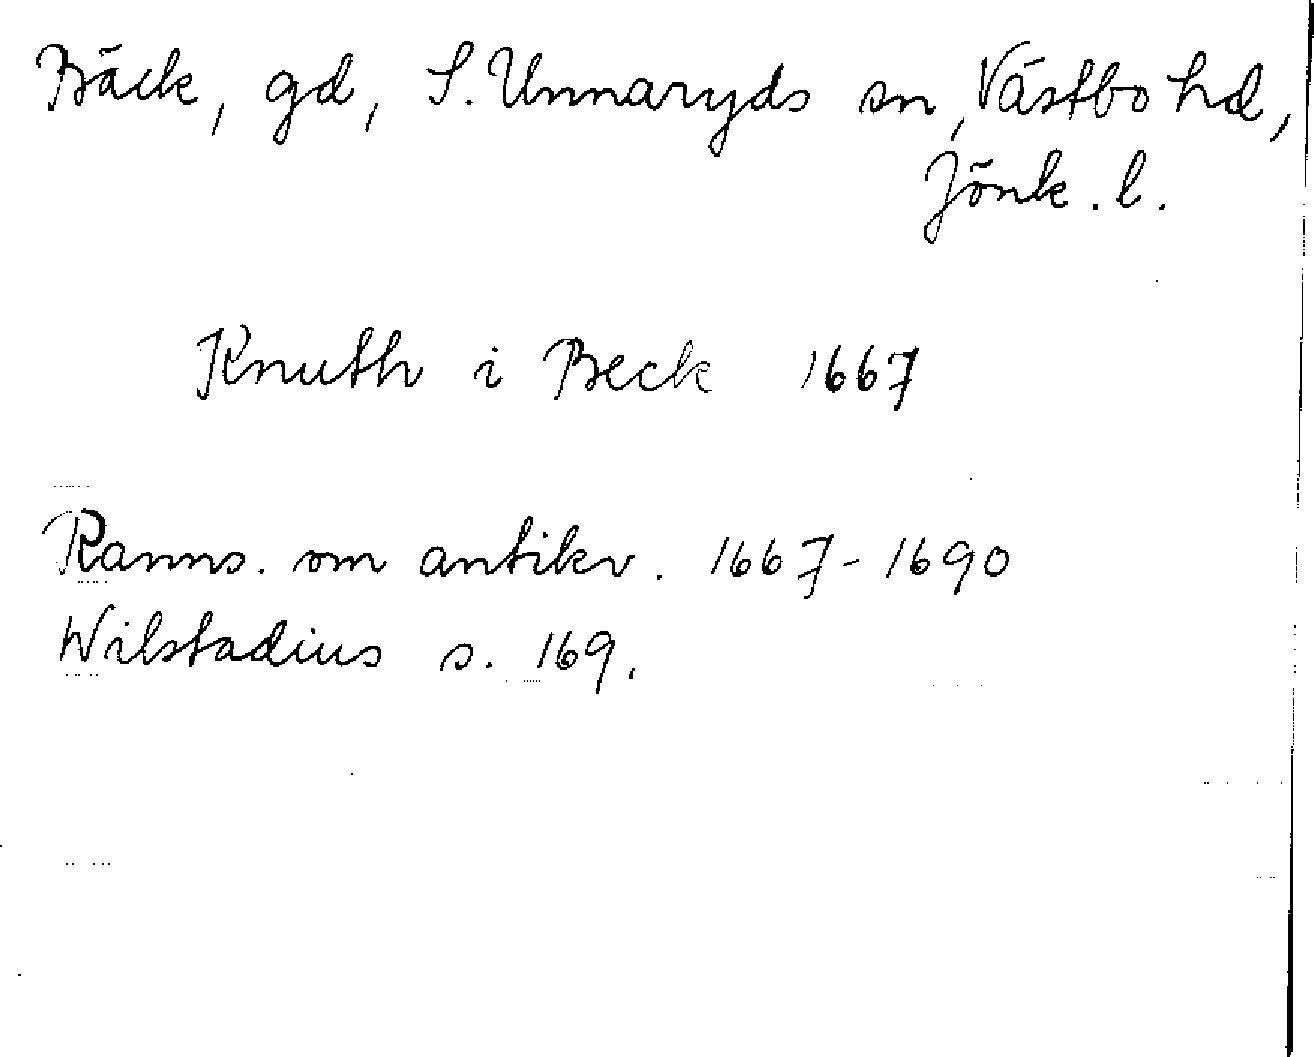 Bäck, gd, S. Unnaryds sn, Västbo hd,
Jönk. l.
Knuth i Beck 1667
Ranns. om antikv. 1667-1690
Wilstadius s. 169.